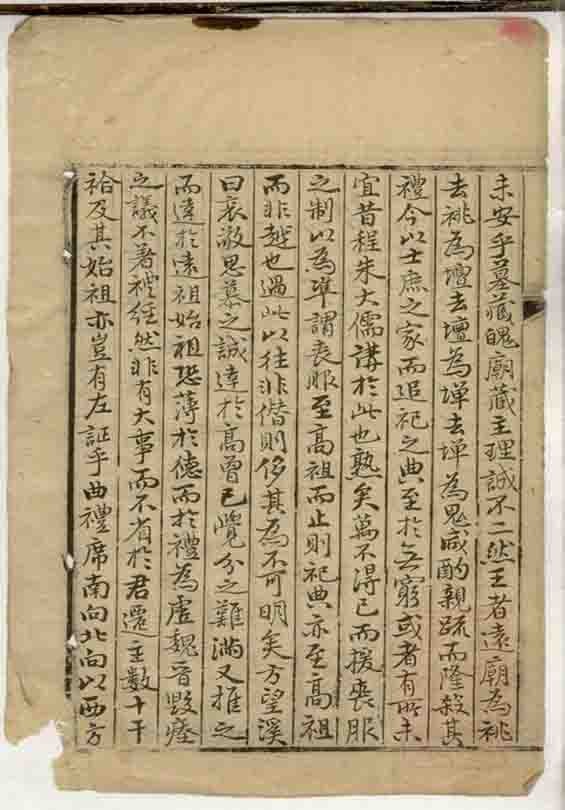 未安乎墓藏魄廟藏主理誠不二然王者遠廟為祧
去祧為壇去壇為墠去墠為鬼咸酌親疏而隆殺其
禮今以士庶之家而追祀之典至於无窮或者有所未
宜昔程朱大儒講於此也熟矣萬不得已而援喪服
之制以為準謂喪服至高祖而止則祀典亦至高祖
而非越也過此以往非僭則侈其為不可明矣方望溪
曰哀敬思慕之誠達於高曾已覺分之難滿又推之
而遠於遠祖始祖恐薄於德而於禮為虛魏晋毀瘞
之議不著禮經然非有大事而不省於君遷主數十干
祫及其始祖亦豈有左証乎曲禮席南向北向以西方